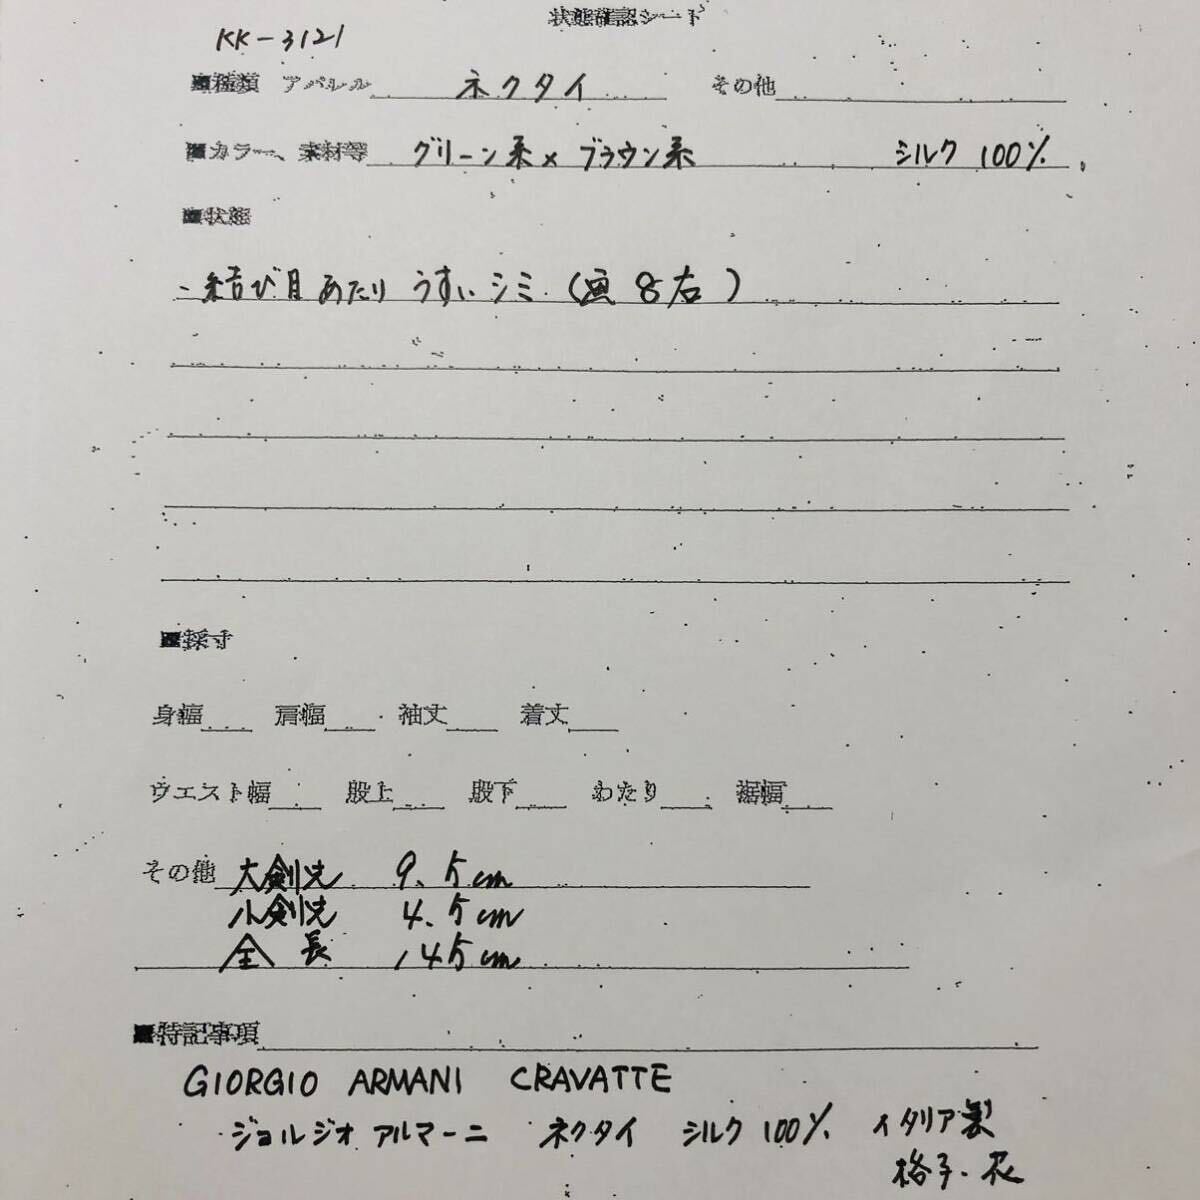 状態確認シート
KK-3121
■種類 アパレル ネクタイ その他
■カラー、素材等 グリーン系×ブラウン系 シルク 100%
■状態
・結び目あたり うすいシミ (画8右)
■採寸
身幅 肩幅 袖丈 着丈
ウエスト幅 股上 股下 わたり 裾幅
その他 大剣先 9.5cm
小剣先 4.5cm
全長 145cm
■特記事項
GIORGIO ARMANI CRAVATTE
ジョルジオ アルマーニ ネクタイ シルク 100% イタリア製
格子・花